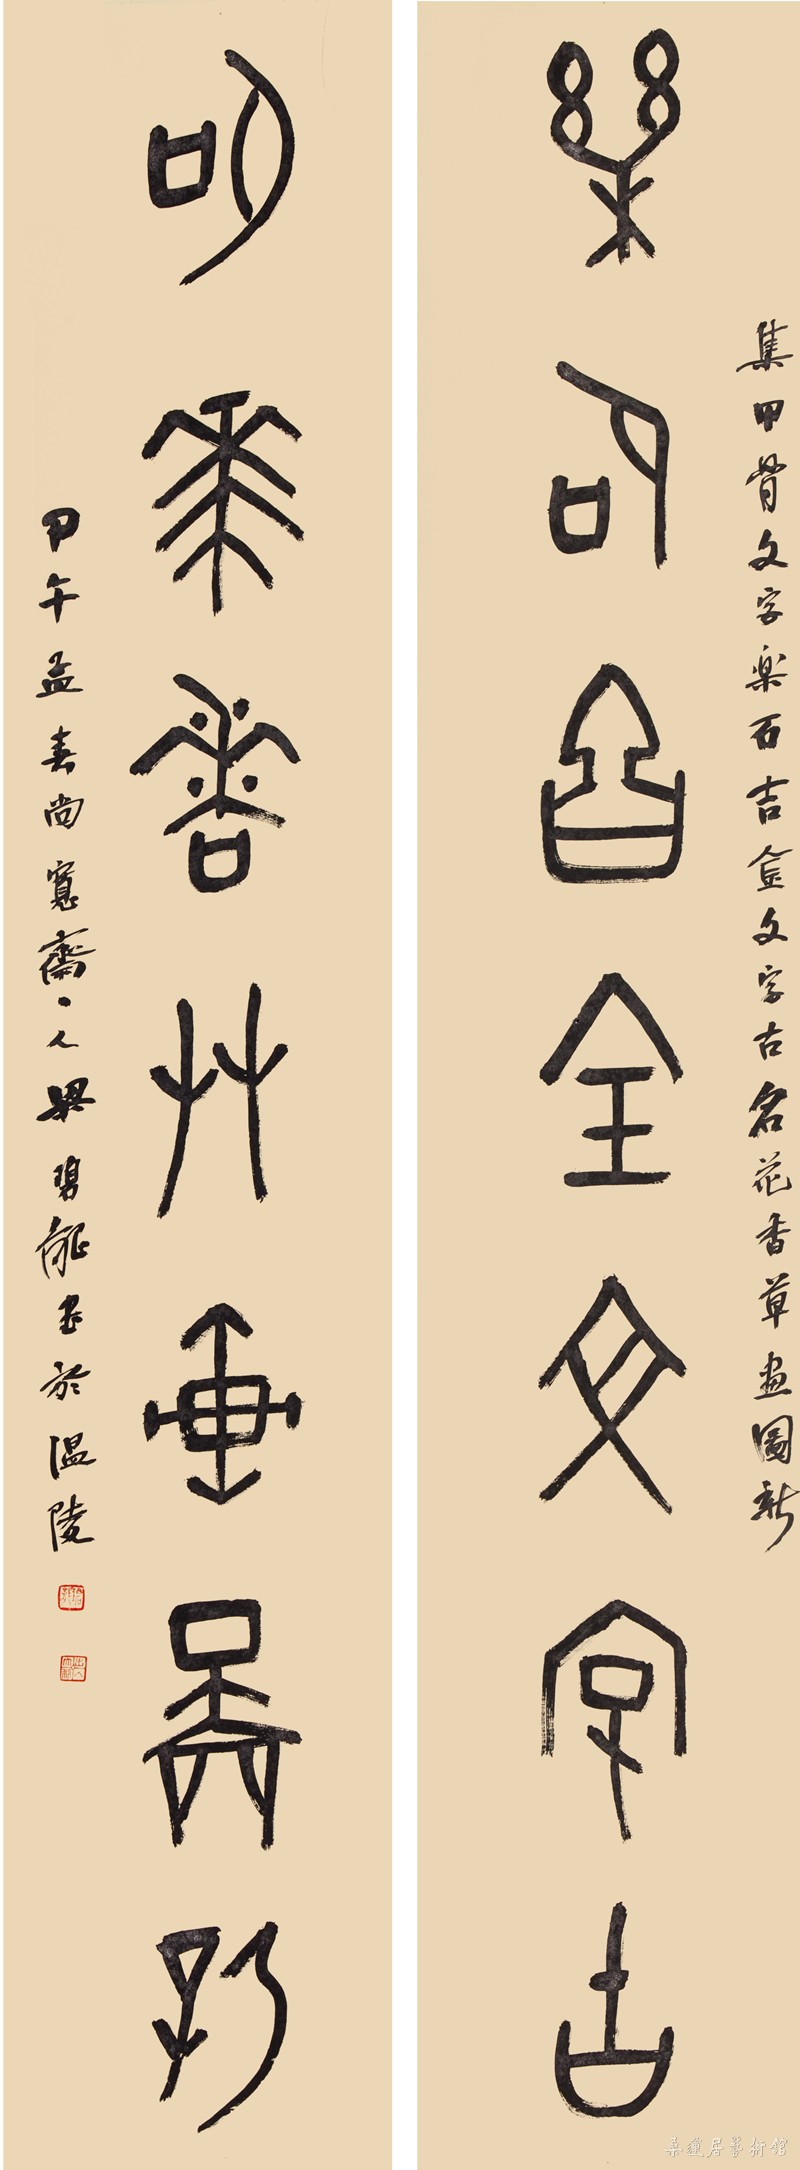 集甲骨文字楽石吉金文字古名花香草畫圖新
樂石吉金文字古
名花香草畫圖新
甲午孟春尚寬齋人梁碧書於温陵
桑蓮居藝術館